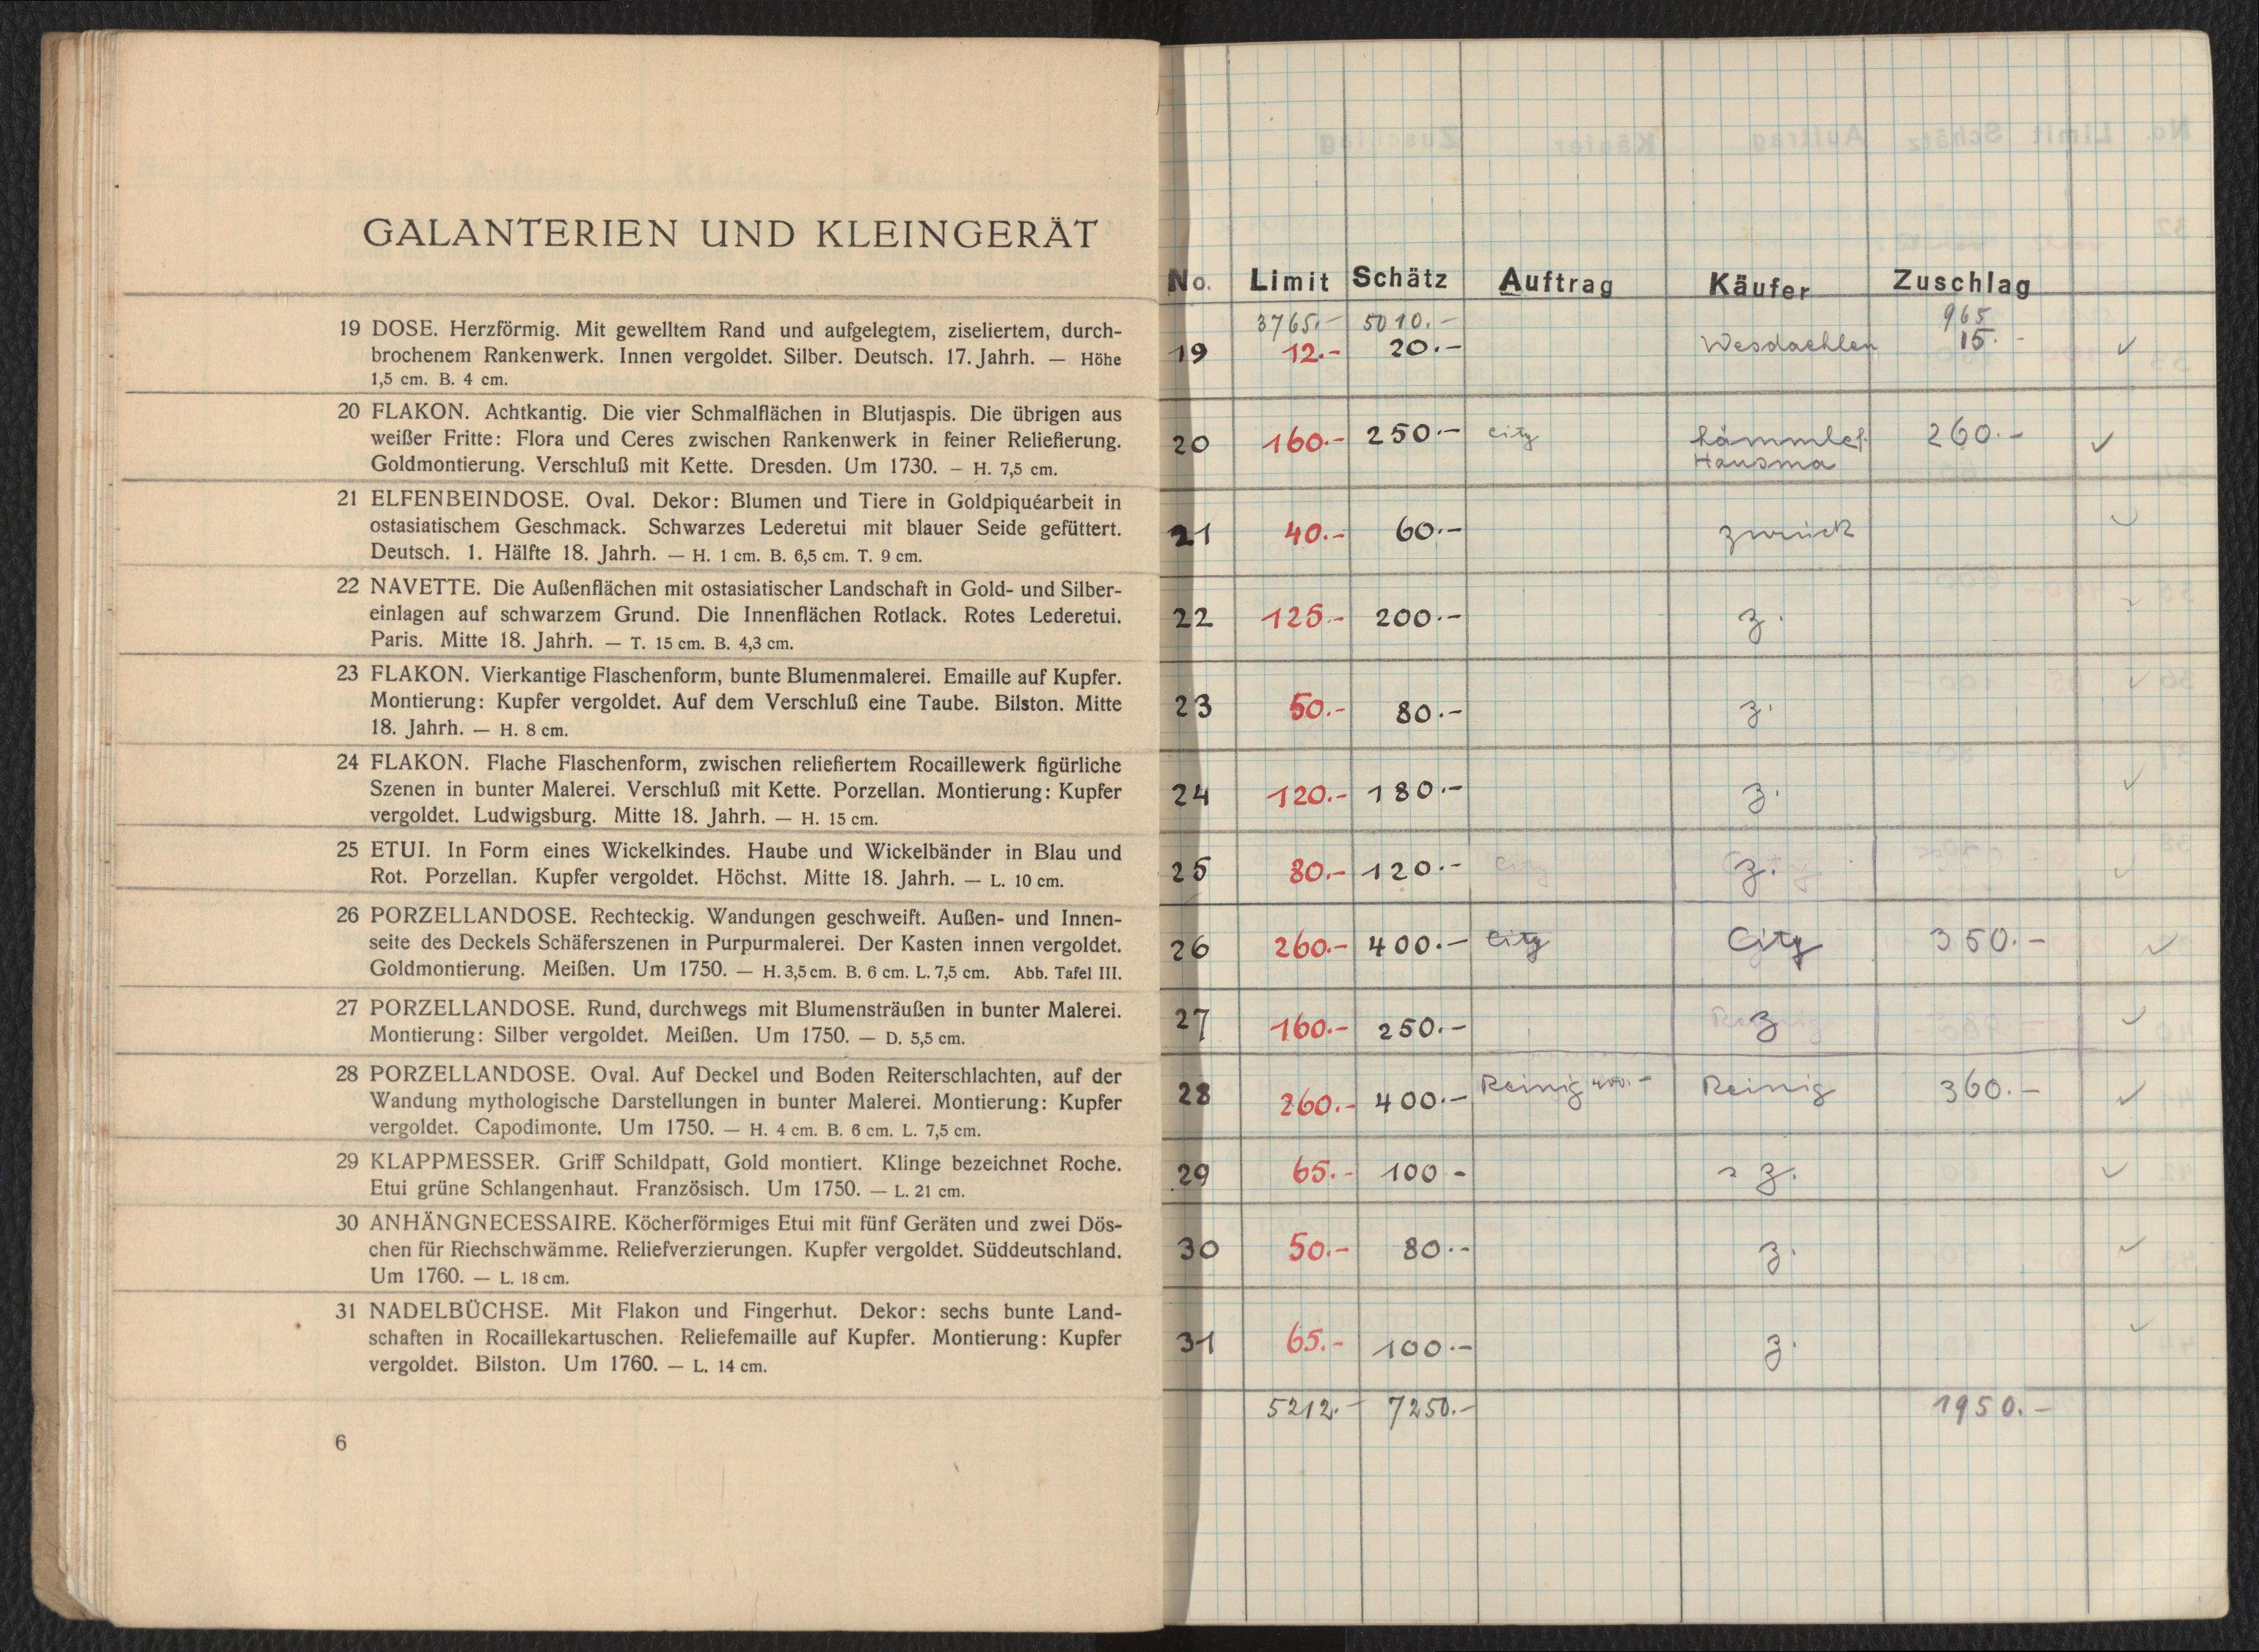 GALANTERIEN UND KLEINGERÄT
19 DOSE. Herzförmig. Mit gewelltem Rand und aufgelegtem, ziseliertem, durch-
brochenem Rankenwerk. Innen vergoldet. Silber. Deutsch. 17. Jahrh. — Höhe
1,5 cm. B. 4 cm.
20 FLAKON. Achtkantig. Die vier Schmalflächen in Blutjaspis. Die übrigen aus
weißer Fritte: Flora und Ceres zwischen Rankenwerk in feiner Reliefierung.
Goldmontierung. Verschluß mit Kette. Dresden. Um 1730. — H. 7,5 cm.
21 ELFENBEINDOSE. Oval. Dekor: Blumen und Tiere in Goldpiquéarbeit in
ostasiatischem Geschmack. Schwarzes Lederetui mit blauer Seide gefüttert.
Deutsch. 1. Hälfte 18. Jahrh. — H. 1 cm. B. 6,5 cm. T. 9 cm.
22 NAVETTE. Die Außenflächen mit ostasiatischer Landschaft in Gold- und Silber-
einlagen auf schwarzem Grund. Die Innenflächen Rotlack. Rotes Lederetui.
Paris. Mitte 18. Jahrh. — T. 15 cm. B. 4,3 cm.
23 FLAKON. Vierkantige Flaschenform, bunte Blumenmalerei. Emaille auf Kupfer.
Montierung: Kupfer vergoldet. Auf dem Verschluß eine Taube. Bilston. Mitte
18. Jahrh. — H. 8 cm.
24 FLAKON. Flache Flaschenform, zwischen reliefiertem Rocaillewerk figürliche
Szenen in bunter Malerei. Verschluß mit Kette. Porzellan. Montierung: Kupfer
vergoldet. Ludwigsburg. Mitte 18. Jahrh. — H. 15 cm.
25 ETUI. In Form eines Wickelkindes. Haube und Wickelbänder in Blau und
Rot. Porzellan. Kupfer vergoldet. Höchst. Mitte 18. Jahrh. — L. 10 cm.
26 PORZELLANDOSE. Rechteckig. Wandungen geschweift. Außen- und Innen-
seite des Deckels Schäferszenen in Purpurmalerei. Der Kasten innen vergoldet.
Goldmontierung. Meißen. Um 1750. — H. 3,5 cm. B. 6 cm. L. 7,5 cm. Abb. Tafel III.
27 PORZELLANDOSE. Rund, durchwegs mit Blumensträußen in bunter Malerei.
Montierung: Silber vergoldet. Meißen. Um 1750. — D. 5,5 cm.
28 PORZELLANDOSE. Oval. Auf Deckel und Boden Reiterschlachten, auf der
Wandung mythologische Darstellungen in bunter Malerei. Montierung: Kupfer
vergoldet. Capodimonte. Um 1750. — H. 4 cm. B. 6 cm. L. 7,5 cm.
29 KLAPPMESSER. Griff Schildpatt, Gold montiert. Klinge bezeichnet Roche.
Etui grüne Schlangenhaut. Französisch. Um 1750. — L. 21 cm.
30 ANHÄNGNECESSAIRE. Köcherförmiges Etui mit fünf Geräten und zwei Dös-
chen für Riechschwämme. Reliefverzierungen. Kupfer vergoldet. Süddeutschland.
Um 1760. — L. 18 cm.
31 NADELBÜCHSE. Mit Flakon und Fingerhut. Dekor: sechs bunte Land-
schaften in Rocaillekartuschen. Reliefemaille auf Kupfer. Montierung: Kupfer
vergoldet. Bilston. Um 1760. — L. 14 cm.
6
No. Limit Schätz Auftrag Käufer Zuschlag
3765.- 5010.- 965
19 12.- 20.- 15.-
20 160.- 250.- City 260.-
21 40.- 60.- zurück
22 125.- 200.- z.
23 50.- 80.- z.
24 120.- 180.- z.
25 80.- 120.- City z.
26 260.- 400.- City City 350.-
27 160.- 250.- z
28 260.- 400.- Reinig 400.- Reinig 360.-
29 65.- 100 - z.
30 50.- 80.- z.
31 65.- 100.- z.
5212.- 7250.- 1950.-